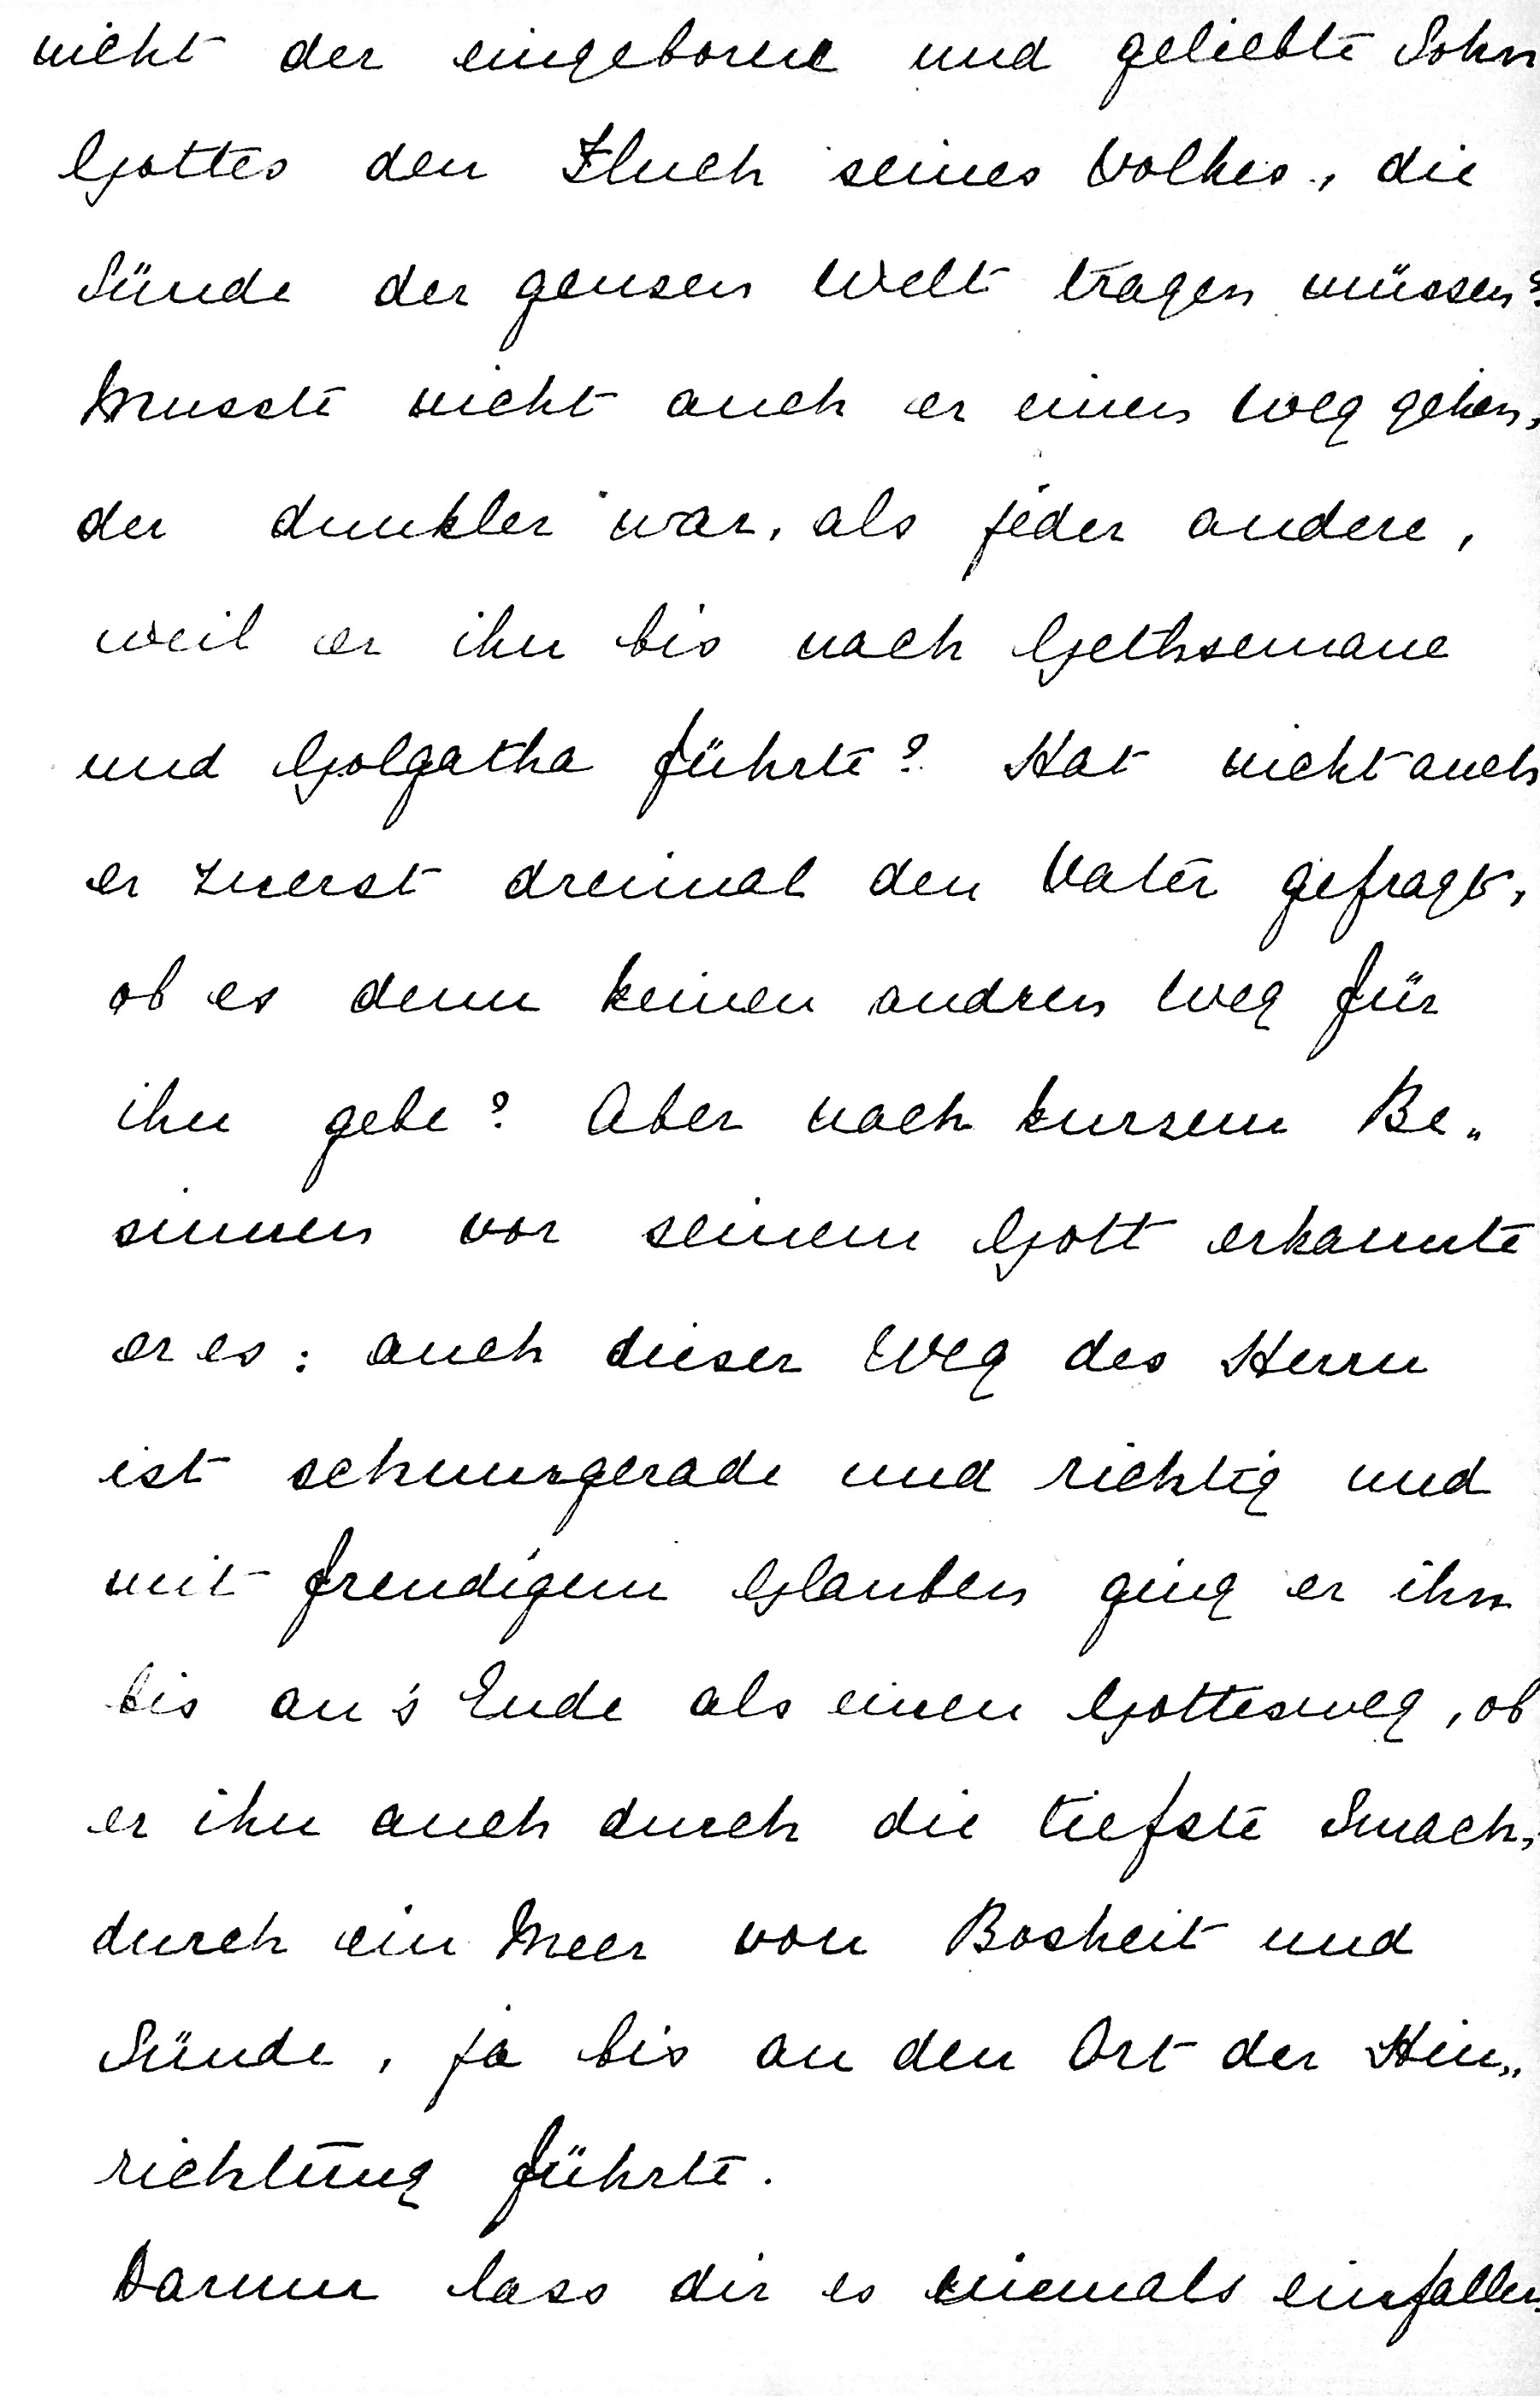 nicht der eingeborene und geliebte Sohn
Gottes den Fluch seines Volkes, die
Sünde der ganzen Welt tragen müssen?
Musste nicht auch er einen Weg gehen,
der dunkler war, als jeder andere,
weil er ihn bis nach Gethsemane
und Golgatha führte? Hat nicht auch
er zuerst dreimal den Vater gefragt,
ob es denn keinen andren Weg für
ihn gebe? Aber nach kurzem Be„
sinnen vor seinem Gott erkannte
er es: auch dieser Weg des Herrn
ist schnurgerade und richtig und
mit freudigem Glauben ging er ihn
bis an's Ende als einen Gottesweg, ob
er ihn auch durch die tiefste Smach,
durch ein Meer von Bosheit und
Sünde, ja bis an den Ort der Hin„
richtung führte.
Darum lass dir es niemals einfallen